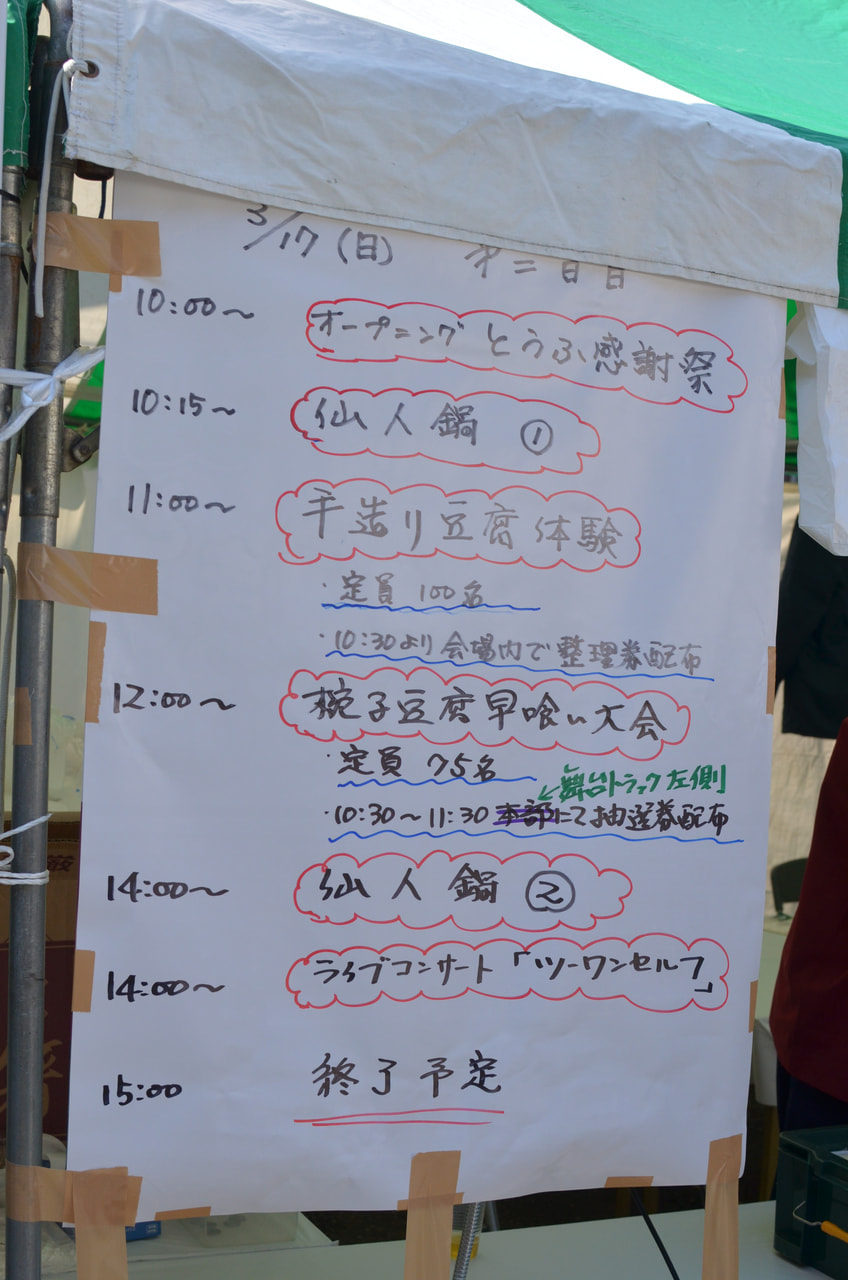 3/17(日) 才二日目
10:00～ オープニング とうふ感謝祭
10:15～ 仙人鍋 ①
11:00～ 手造り豆腐体験
・定員 100名
・10:30より会場内で整理券配布
12:00～ 椀子豆腐早喰い大会
・定員 75名
←舞台トラック左側
・10:30～11:30 本部にて抽選券配布
14:00～ 仙人鍋 ②
14:00～ ライブコンサート「ツーワンセルフ」
15:00 終了予定